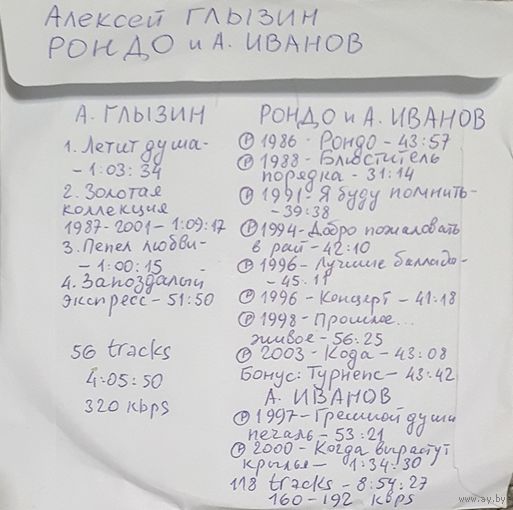 Алексей ГЛЫЗИН
РОНДО и А. ИВАНОВ
А. ГЛЫЗИН
1. Летит душа-
- 1:03:34
2. Золотая
коллекция
1987-2001 - 1:09:17
3. Пепел любви-
- 1:00:15
4. Запоздалый
экспресс - 51:50
56 tracks
4:05:50
320 kbps
РОНДО и А. ИВАНОВ
Ⓟ 1986 - Рондо - 43:57
Ⓟ 1988 - Блюститель
порядка - 31:14
Ⓟ 1991 - Я буду помнить-
- 39:38
Ⓟ 1994 - Добро пожаловать
в рай - 42:10
Ⓟ 1996 - Лучшие баллады-
- 45:11
Ⓟ 1996 - Концерт - 41:18
Ⓟ 1998 - Прошлое...
живое - 56:25
Ⓟ 2003 - Кода - 43:08
Бонус: Турнепс - 43:42
А. ИВАНОВ
Ⓟ 1997 - Грешной души
печаль - 53:21
Ⓟ 2000 - Когда вырастут
крылья - 1:34:30
118 tracks - 8:54:27
160-192 kbps
www.ay.by